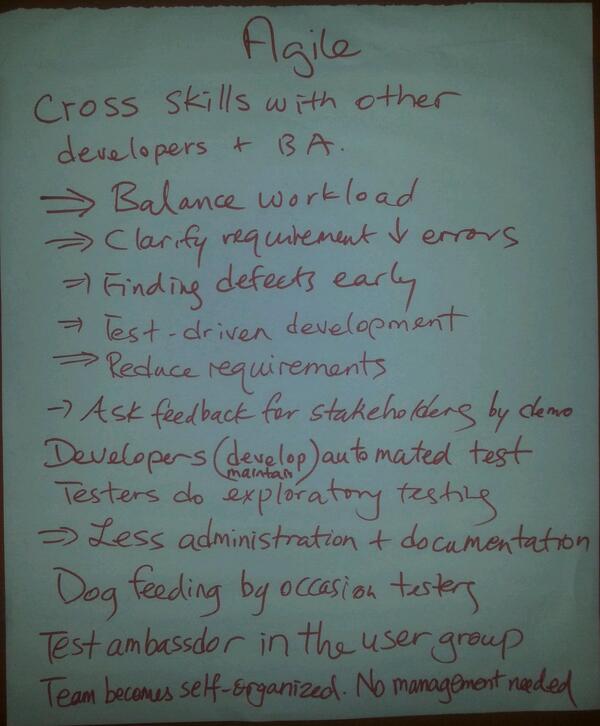 Agile
Cross skills with other
developers + BA.
⇒ Balance workload
⇒ Clarify requirement ↓ errors
⇒ Finding defects early
⇒ Test-driven development
⇒ Reduce requirements
→ Ask feedback for stakeholders by demo
Developers (develop) automated test
maintain
Testers do exploratory testing
⇒ Less administration + documentation
Dog feeding by occasion testers
Test ambassdor in the user group
Team becomes self-organized. No management needed